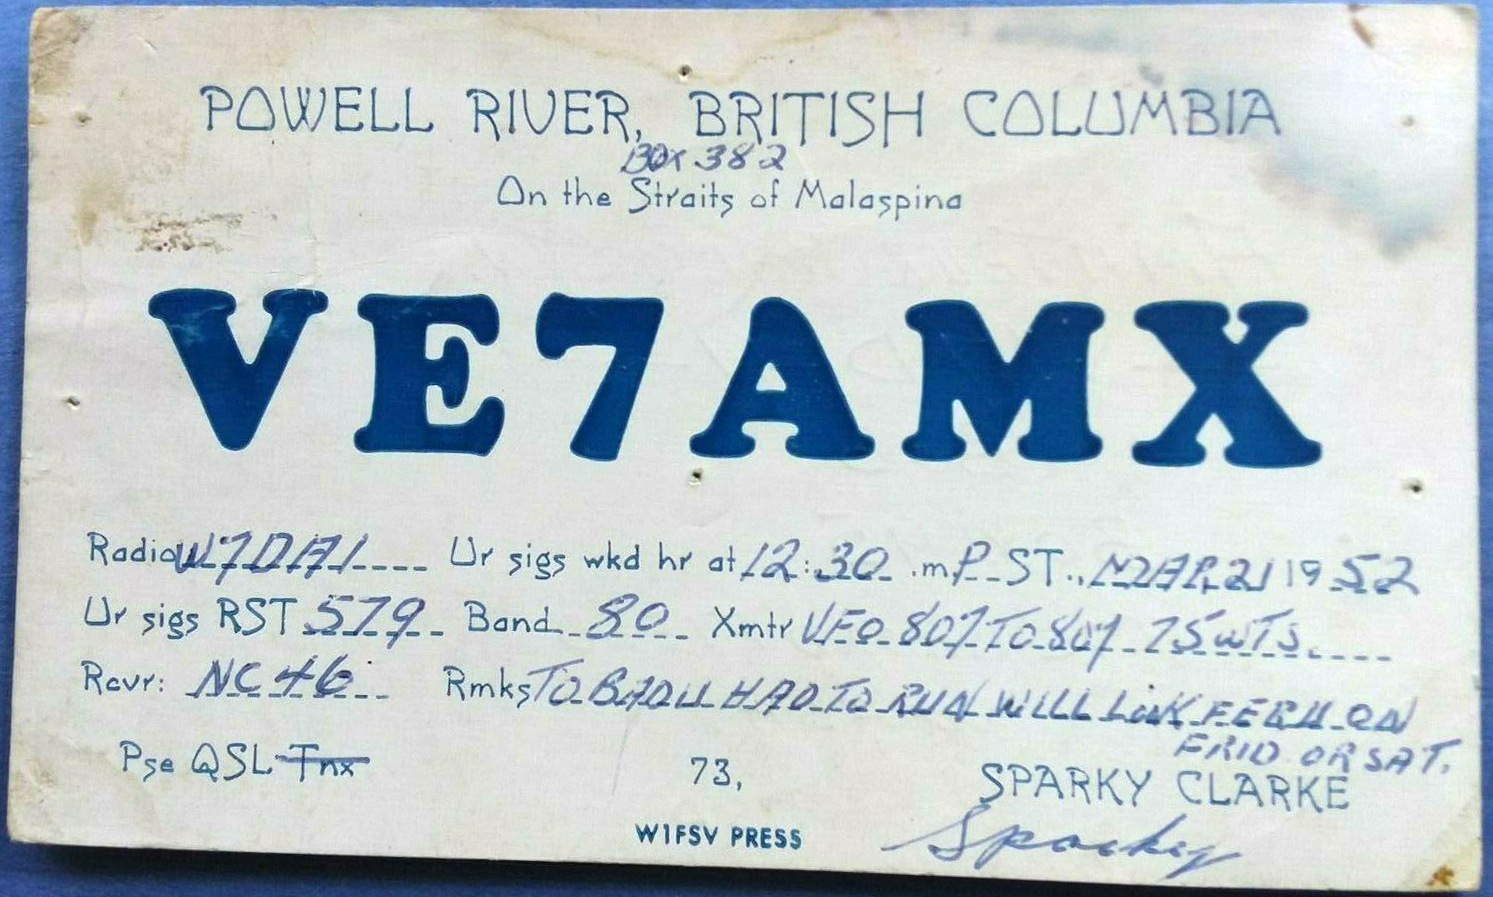 POWELL RIVER, BRITISH COLUMBIA
BOX 382
On the Straits of Malaspina
VE7AMX
Radio W7DAI Ur sigs wkd hr at 12:30 .m P ST., MAR 21 1952
Ur sigs RST 579 Band 80 Xmtr VFO 807 TO 807 75 WTS.
Rcvr: NC 46 Rmks TO BAD U HAD TO RUN WILL LOOK FER U ON
FRID OR SAT.
Pse QSL Tnx 73, SPARKY CLARKE
Sparky
W1FSV PRESS